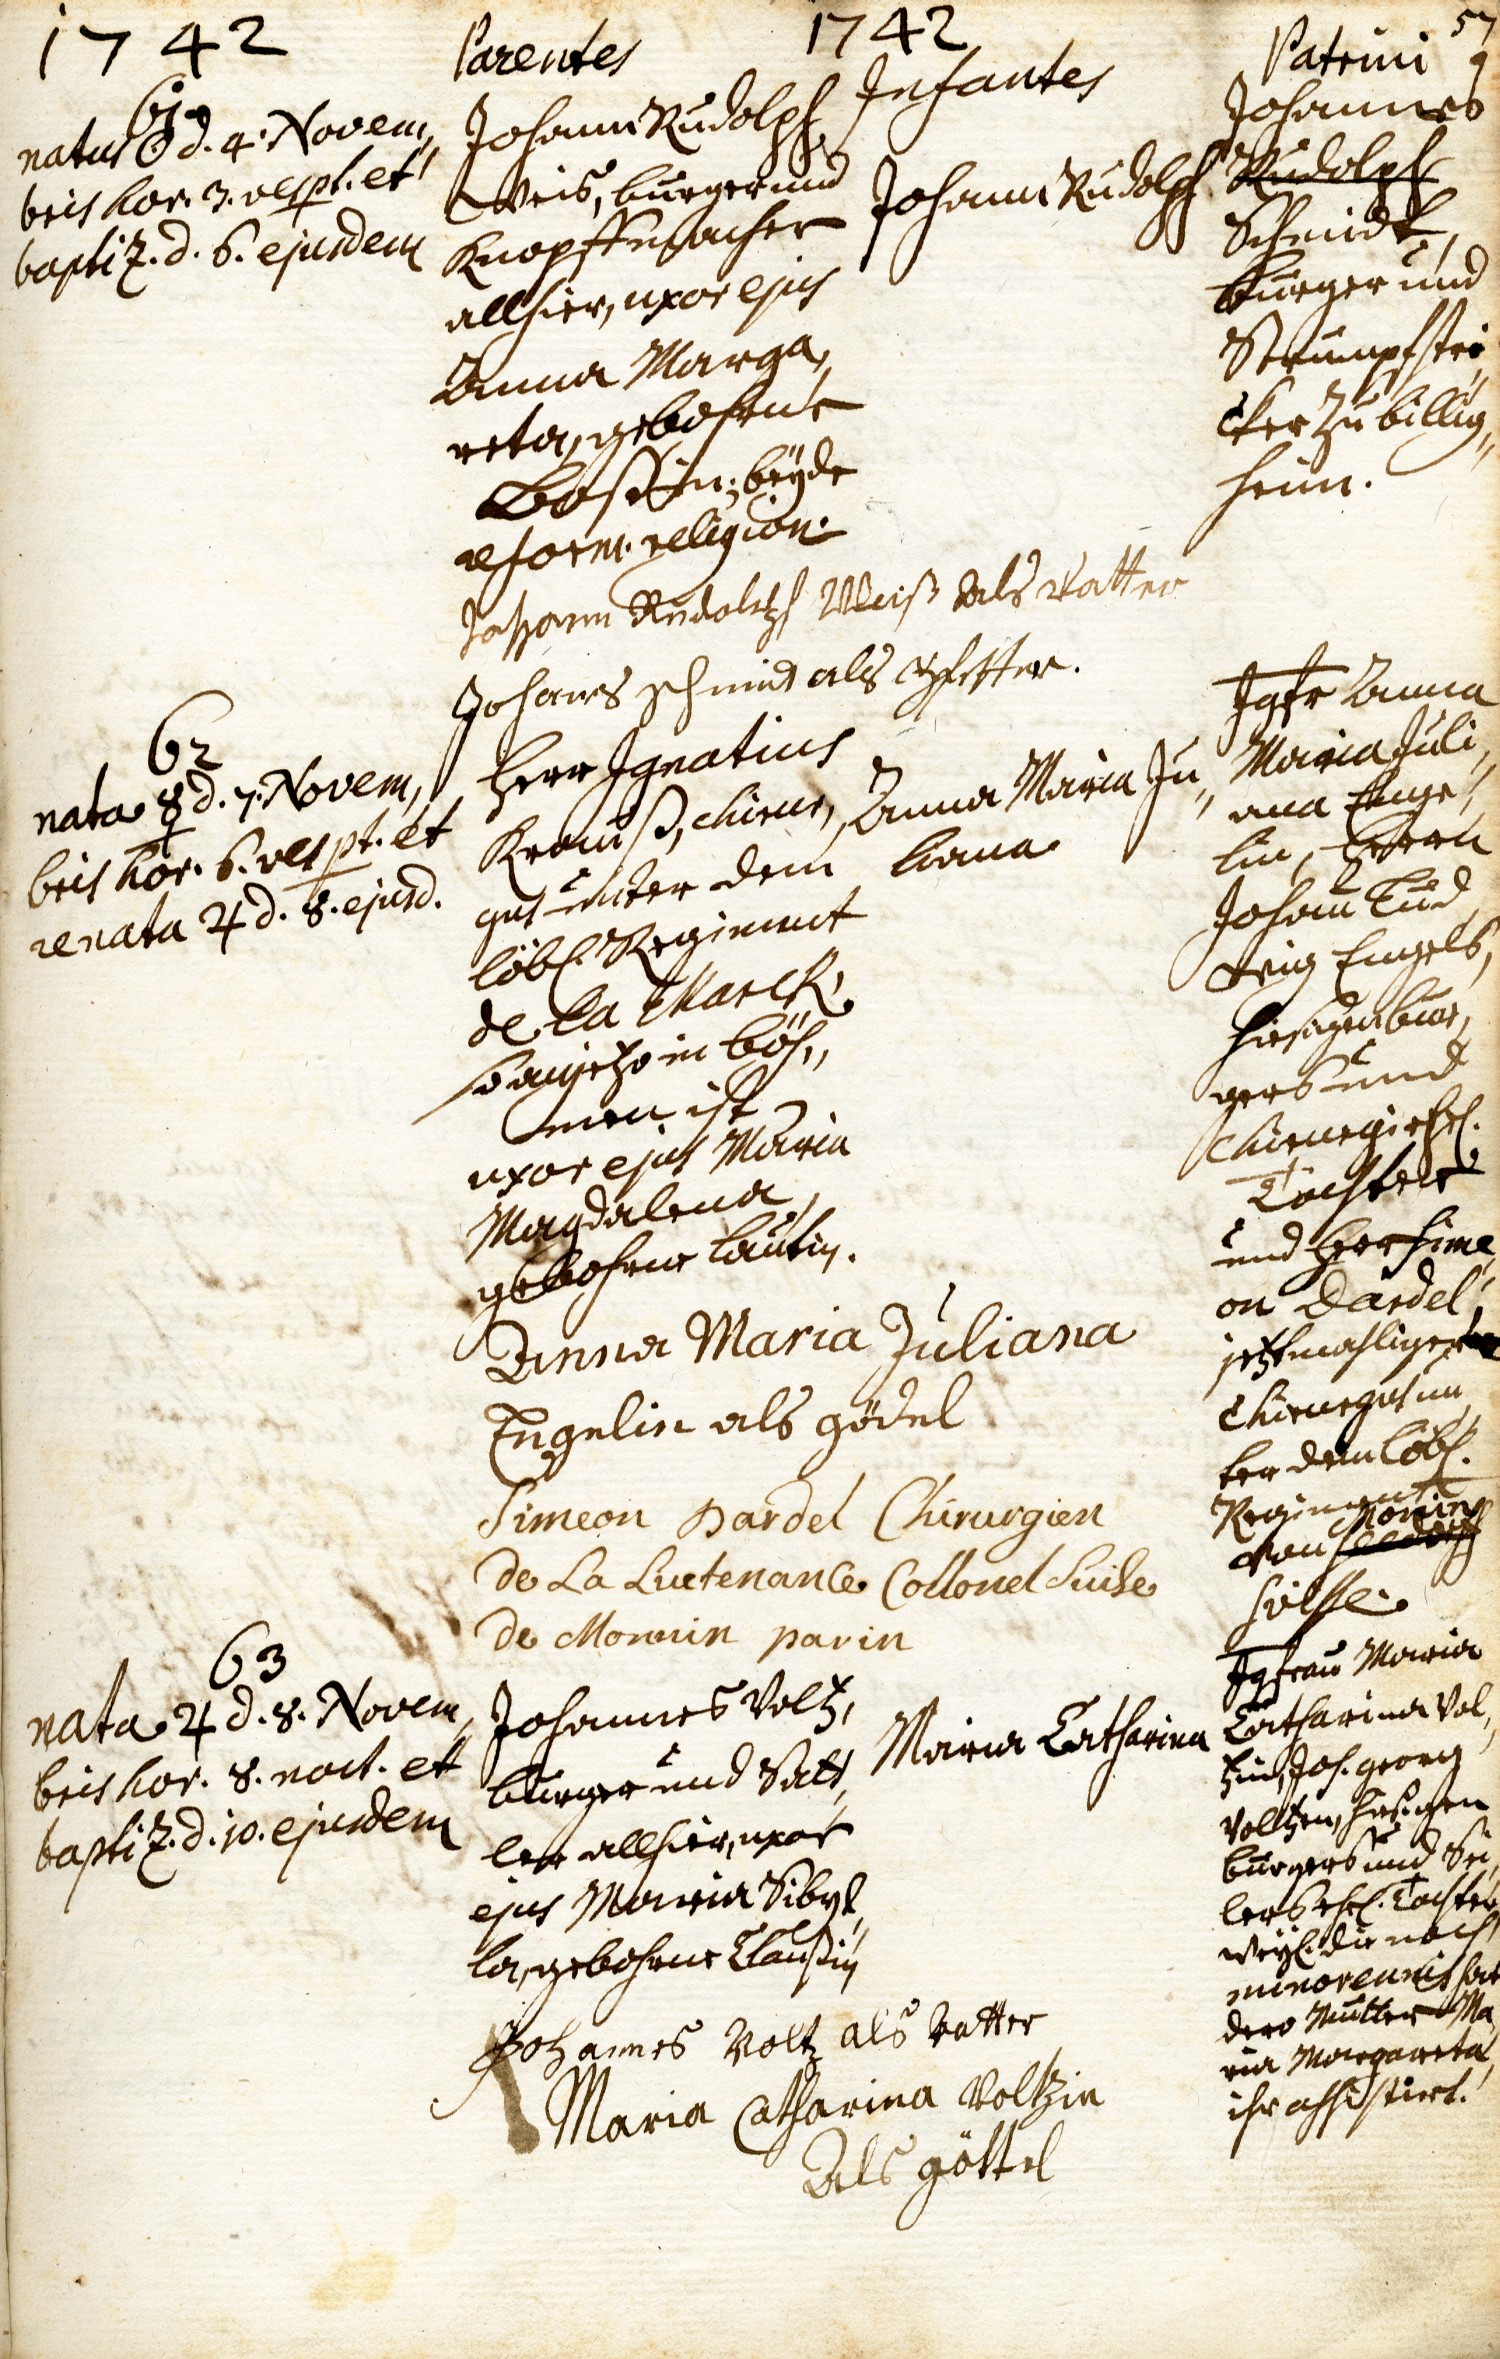 1742 Parentes 1742 Infantes Patrini 57
61.
natus ☉ d. 4. Novem,
bris hor. 3. vespt. et
baptiz. d. 6. ejusdem
Johann Rudolph
Weis, burger und
Knopffmacher
allhier, uxor ejus
Anna Marga,
reta, gebohrne
Bossin; beyde
reform. religion.
Johann Rudolph
Johannes
Rudolph
Schmidt,
burger und
Strumpfstri,
cker zu billig,,
heim.
Johann Rudolph Weiß als vatter
Johanes schmid als pfetter.
62
nata ☿ d. 7. Novem,
bris hor. 6. vespt. et
renata ♃ d. 8. ejusd.
Herr Ignatius
Krauß, chirur,
gus unter dem
löbl. Regiment
de la Marck,
so anjetzo in böh,,
men ist
uxor ejus Maria
Magdalena,
gebohrne Lautin.
Anna Maria Ju,,
liana
Jgfr Anna
Maria Juli,,
ana Enge,
lin, Herrn
Johann Lud,
wig Engels,
hiesigen bur,
gers und
Chirurgi ehl.
Tochter
und Herr Sime,
on Dardel,
jetztmahliger
Chirurgus un,
ter dem löbl.
Regiment
von Monin

Anna Maria Juliana
Engelin als gödel
Simeon Dardel Chirurgien
de La Lietenance Collonel Suise
de Monnin parin
63
nata ♃ d. 8. Novem,
bris hor. 8. noct. et
baptiz. d. 10. ejusdem
Johannes Voltz,
burger und Satt,
ler allhier, uxor
ejus Maria Sibyl,
la, gebohrne Claußin
Maria Catharina
Jgfrau Maria
Catharina Vol,,
tzin, Joh. georg
Voltzen, hiesigen
burgers und Sei,
lers ehl. Tochter,
weyl. die noch
minorennis hat
dero Mutter Ma,
ria Margareta,
ihr assistirt.
Johannes Voltz als vatter
Maria Catharina Voltzin
Als göttel